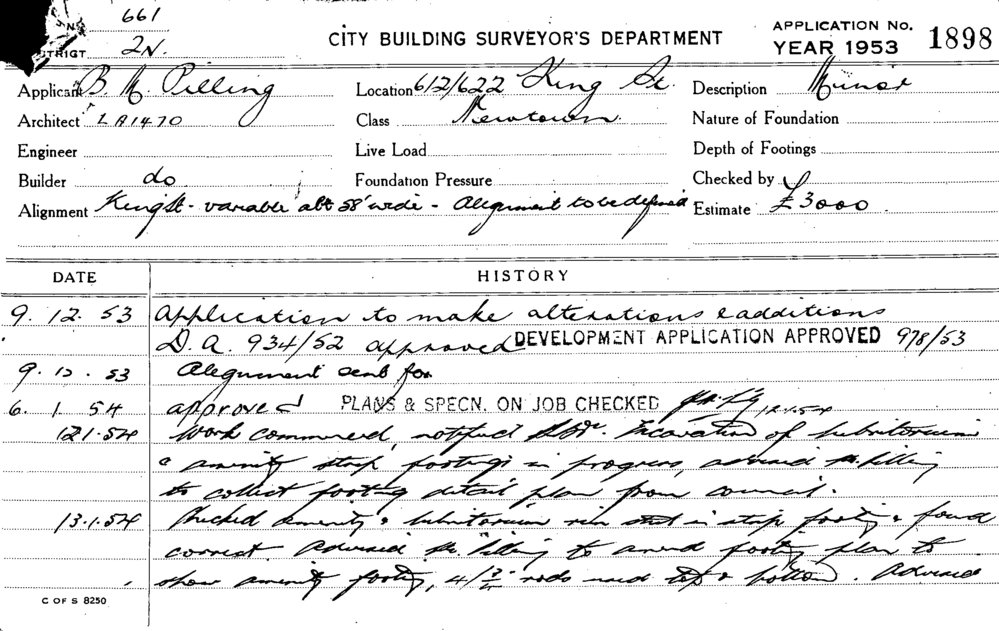 661
DISTRICT 2N.
CITY BUILDING SURVEYOR'S DEPARTMENT
APPLICATION No. 1898
YEAR 1953
Applicant B M. Pilling Location 612/622 King St. Description Minor
Architect LA1470 Class Newtown. Nature of Foundation
Engineer Live Load Depth of Footings
Builder do Foundation Pressure Checked by
Alignment King St - variable abt 58' wide - Alignment to be defined Estimate £3000
DATE HISTORY
9. 12. 53 Application to make alterations & additions
D.A. 934/52 approved DEVELOPMENT APPLICATION APPROVED 978/53
9. 12. 53 Alignment sent for
6. 1. 54 approved PLANS & SPECN. ON JOB CHECKED 12.1.54
12.1.54 Work commenced, notified Excavation of lubritorium
& amenity strip footings in progress, advised Mr. Pilling
to collect footing detail plan from council.
13.1.54 Checked amenity & lubritorium steel in strip footing & found
correct Advised Mr. Pilling to amend footing plan to
show amenity footing, 4/ rods used top & bottom. Advised
C OF S 8250